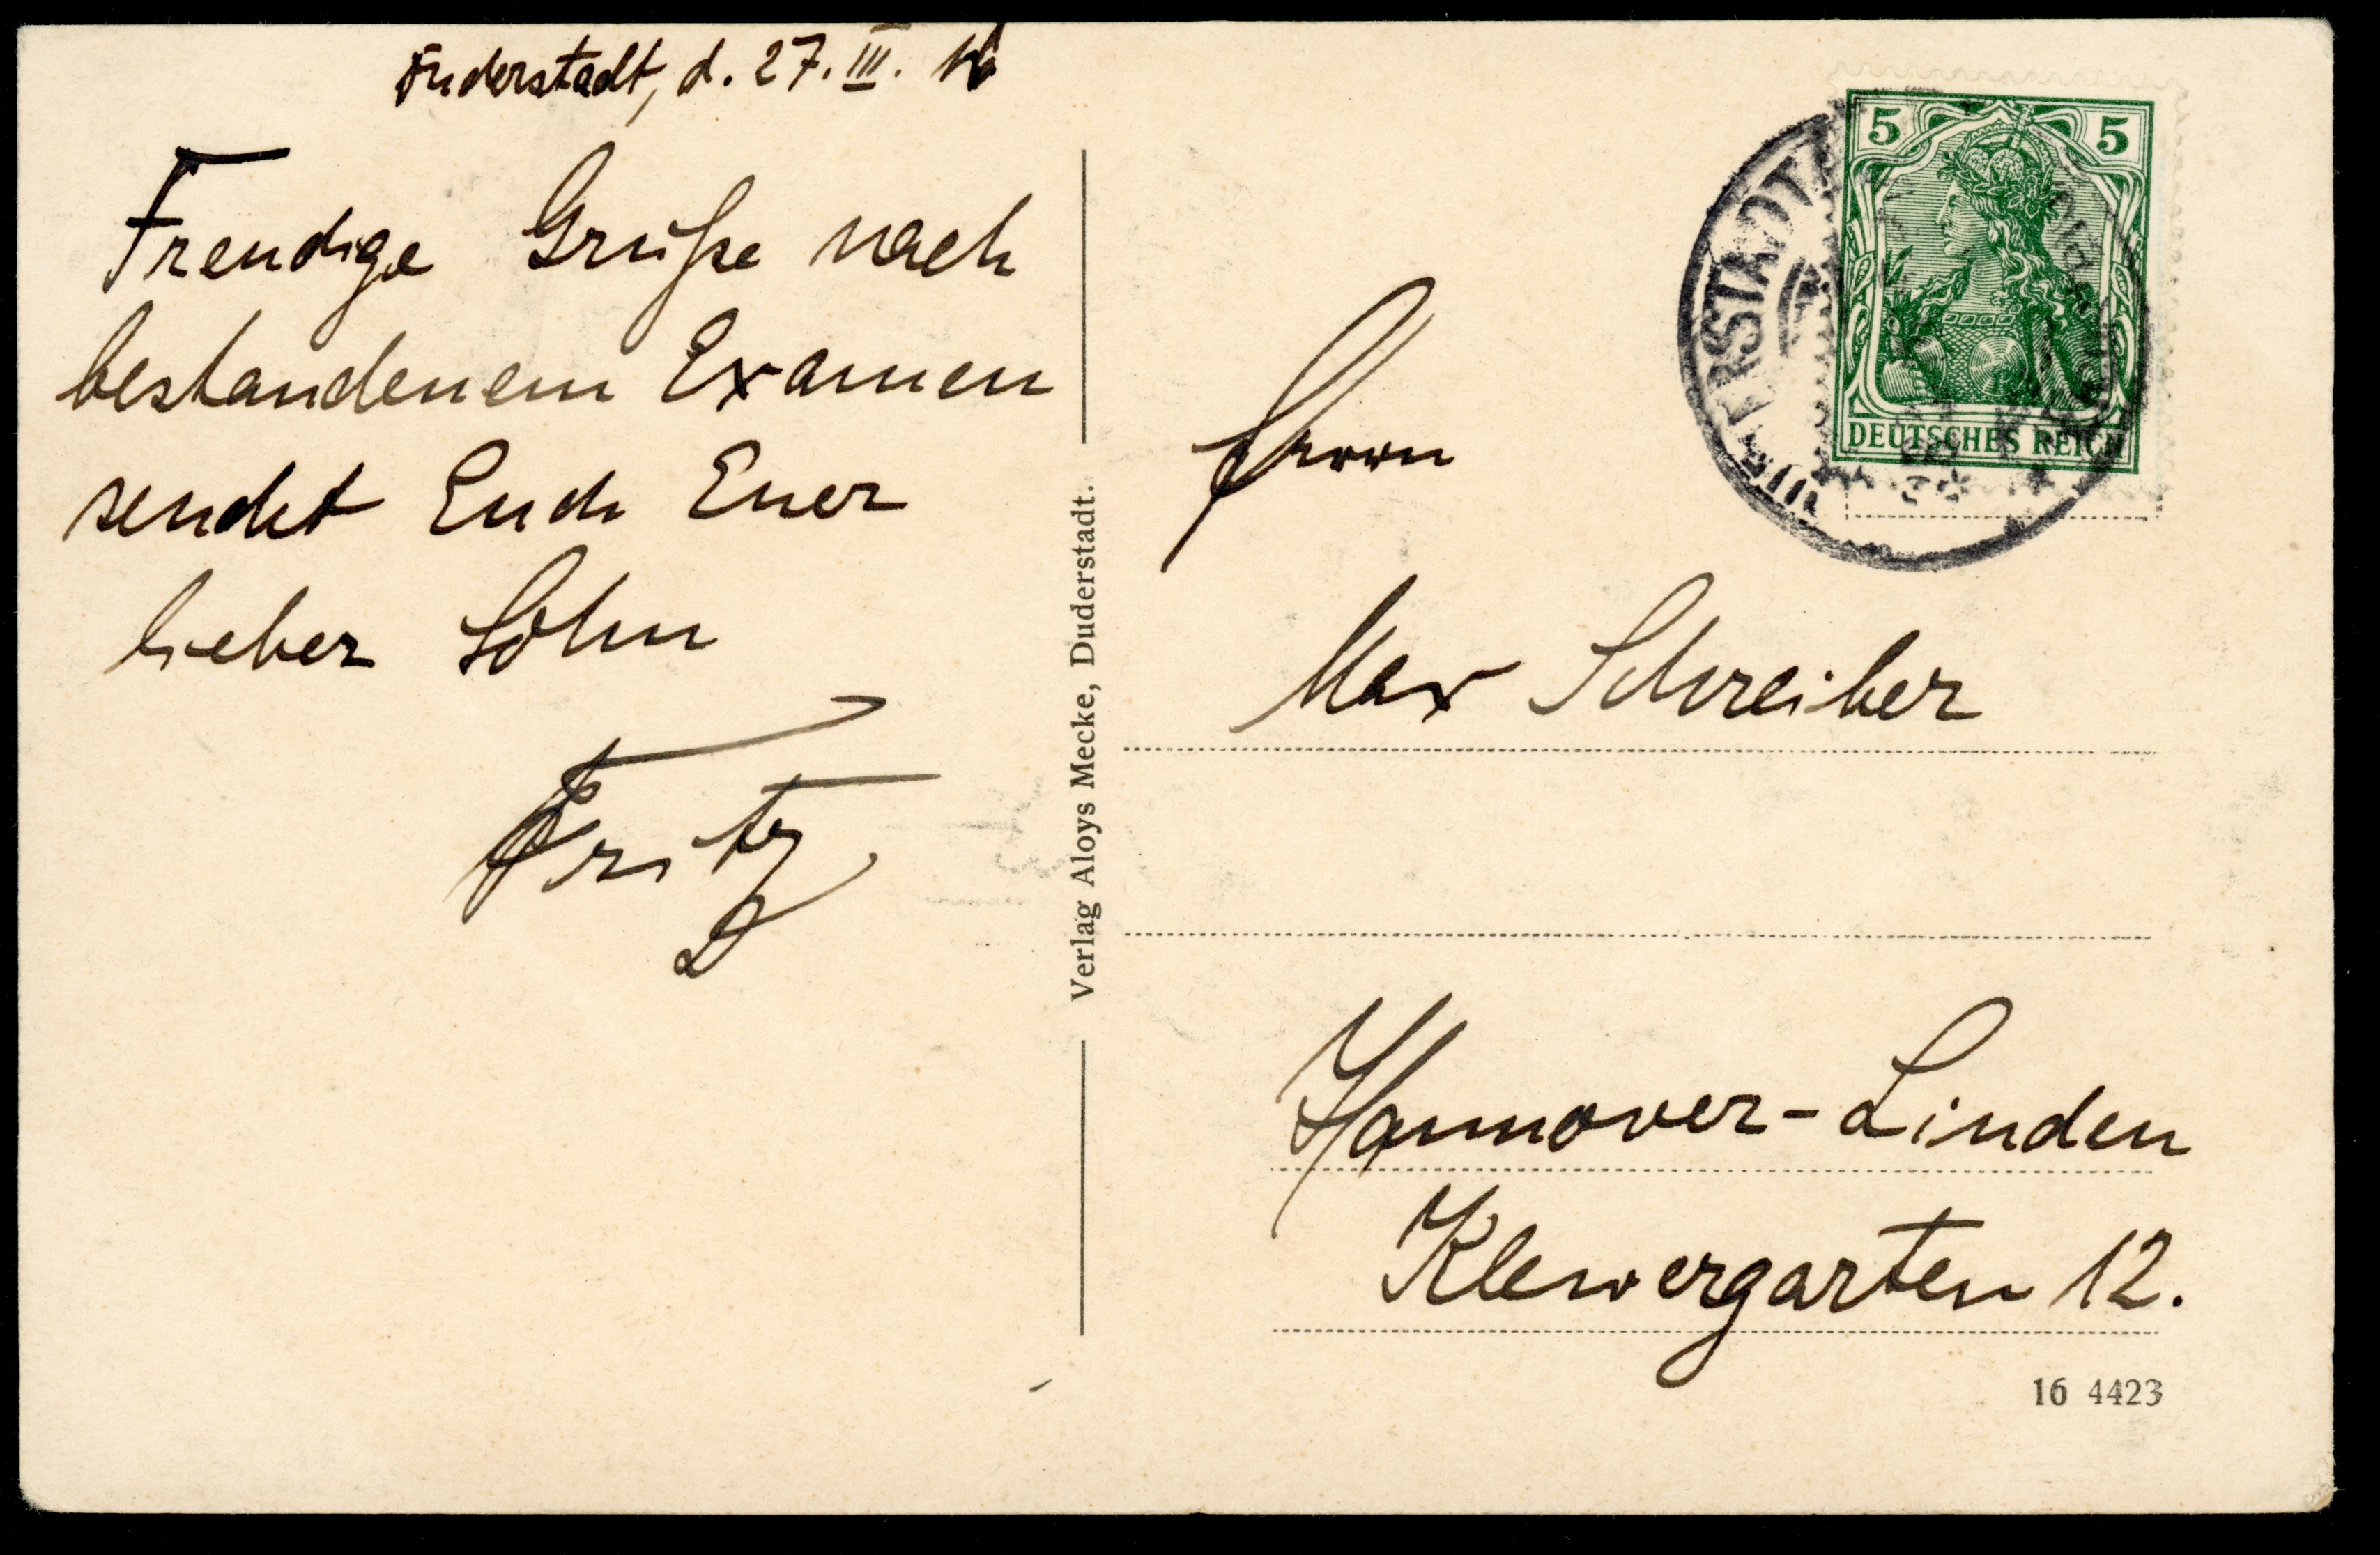 Duderstadt, d. 27. III. 16
Freudige Grüße nach
bestandenem Examen
sendet Euch Euer
lieber Sohn
Fritz
Verlag Aloys Mecke, Duderstadt.
5 5
DEUTSCHES REICH
DERSTADT
Herrn
Max Schreiber
Hannover-Linden
Klewergarten 12.
16 4423